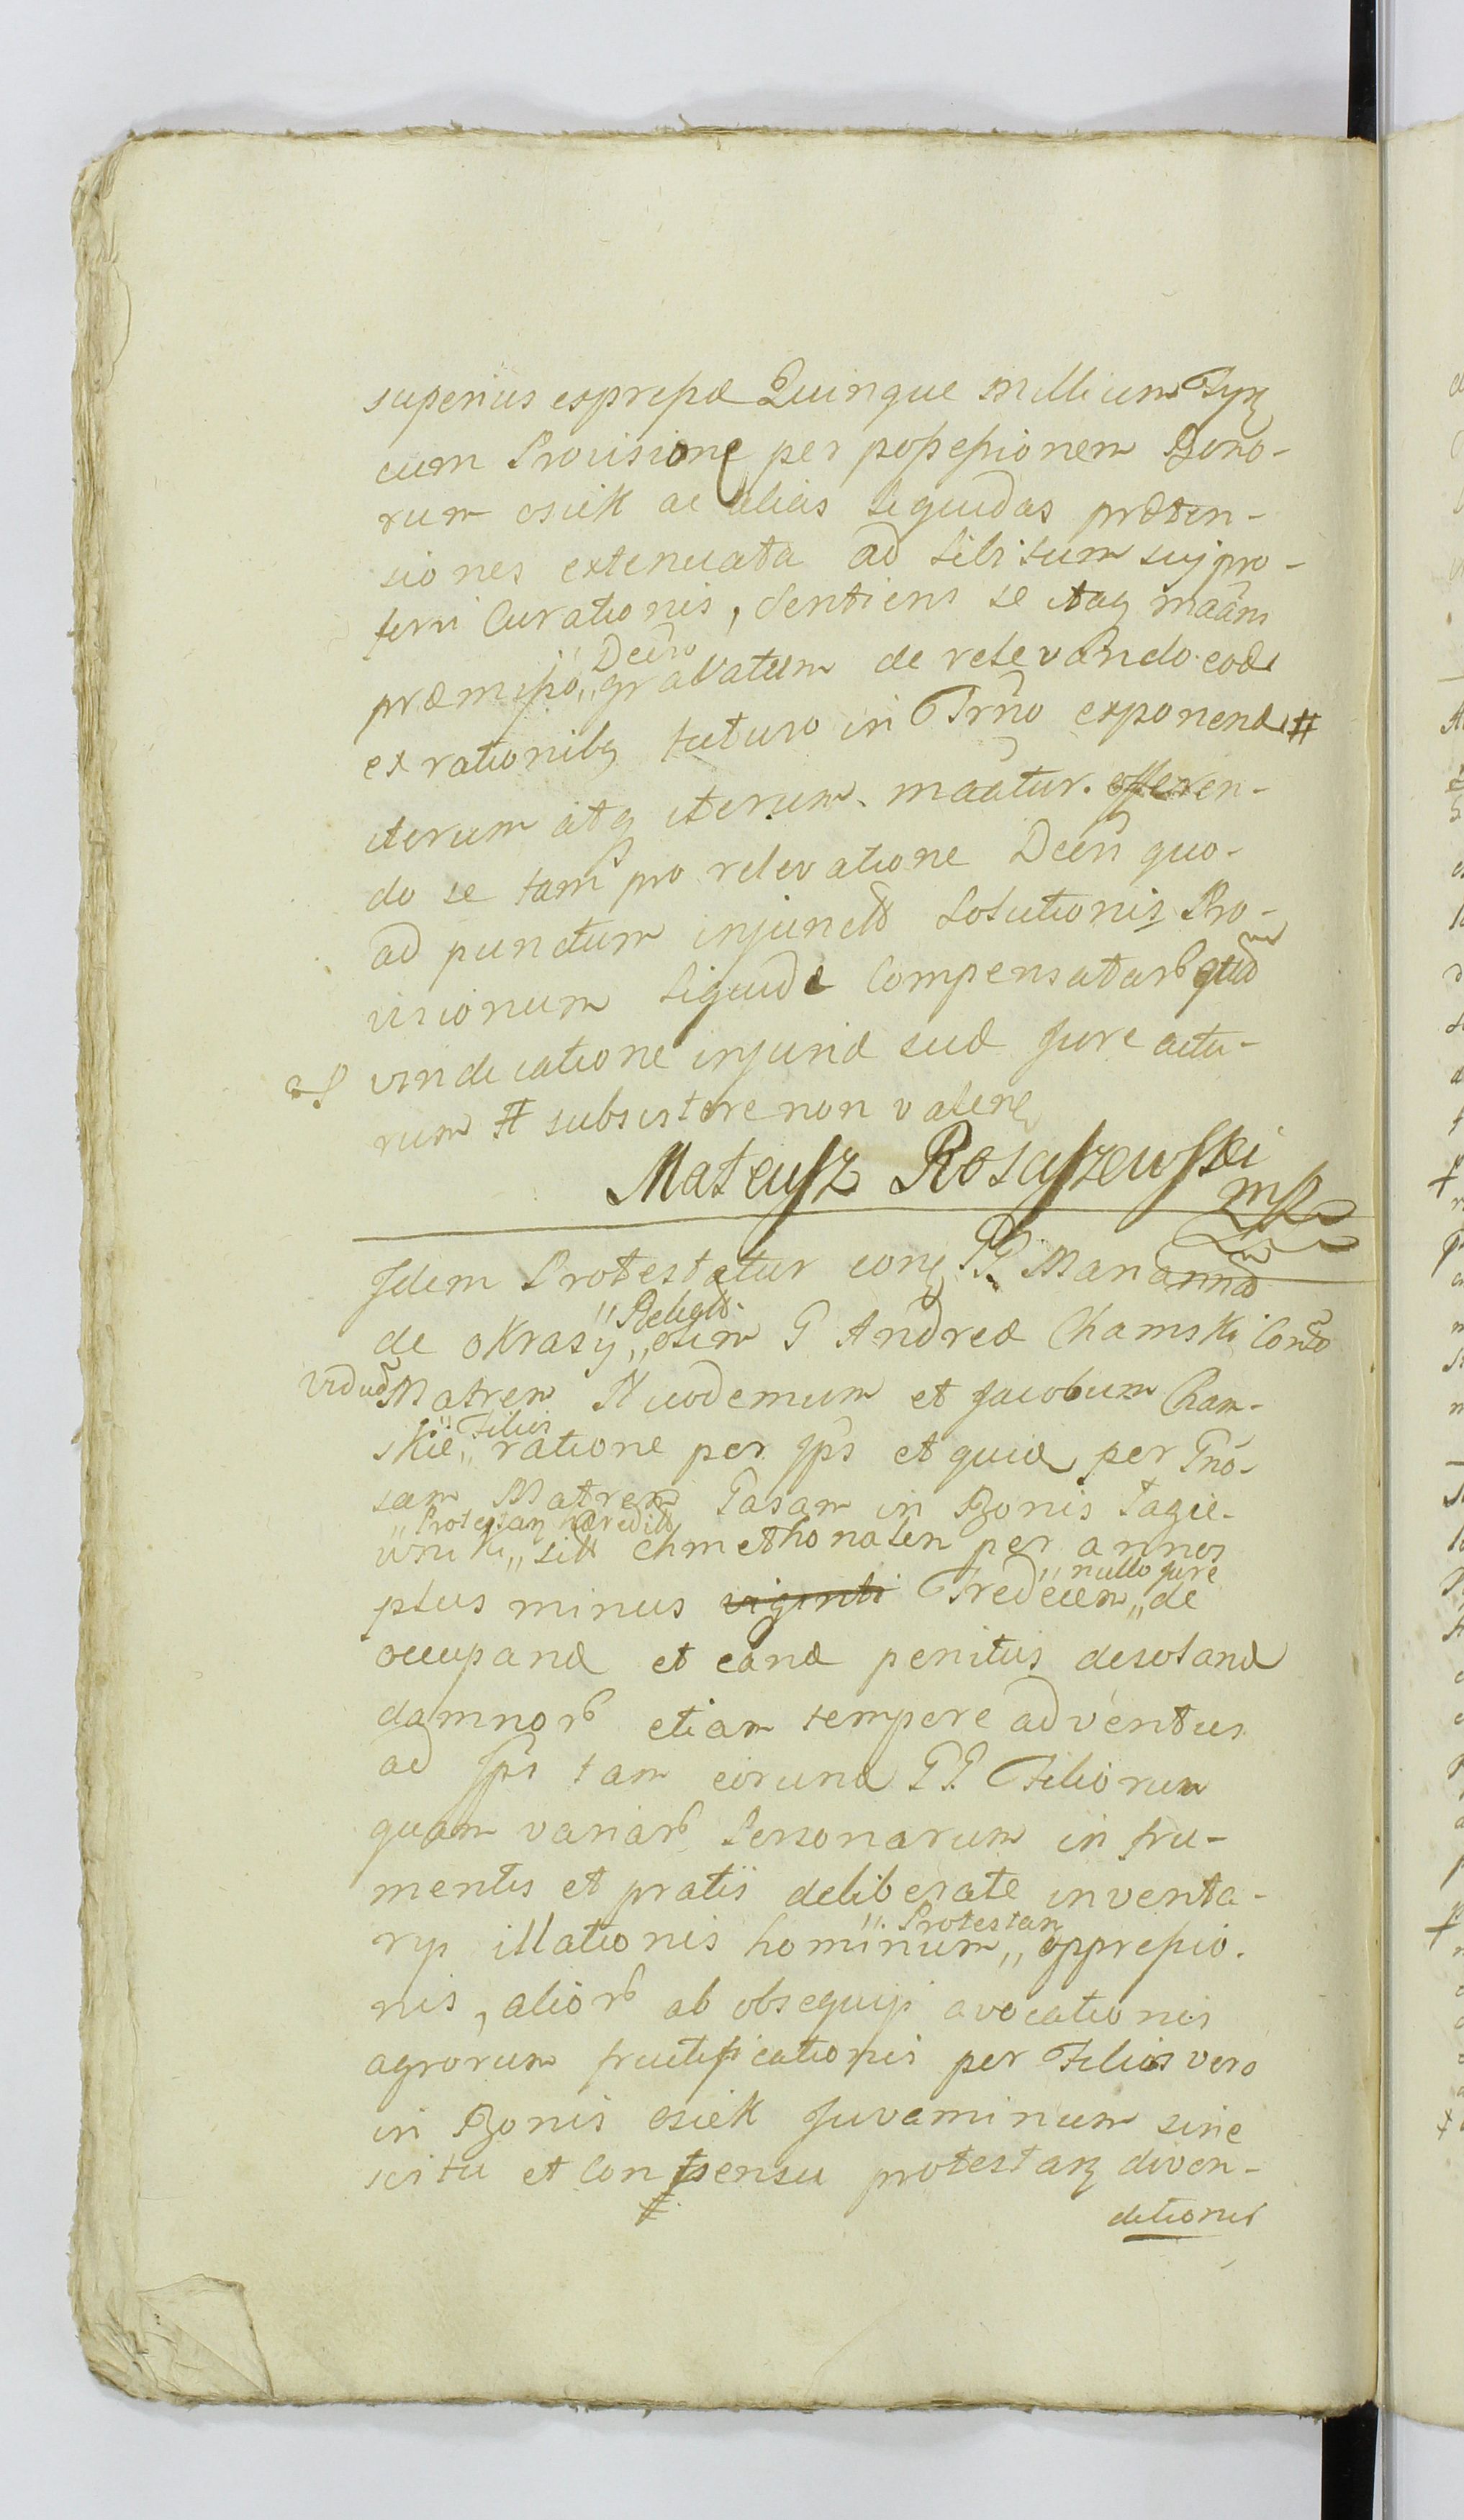 superius expressæ Quinque Millium Tyñ
cum Provisione per possessionem Bono-
rum osiek ac alias liquidas præten-
siones extenuata ad libitum sui pro-
tervi Curationis, Sentiens se itaq maãm
præmisso „gravatum de relevando eod
"Decro
ex rationibq futuro in Trño exponend #
iterum atq iterum. maãtur. offeren-
do se tam pro relevatione Decñ quo-
ad punctum injunctæ Solutionis Pro-
visionum liquide Compensatar
et vindicatione injuriæ suæ Jure actu-
rum # subsistere non valen
Mateusz Rosaszewski
mp
Idem Protestatur con G. Mariannã
de okrasy „olim G Andreæ Chamski
"Relictã
viduã Matrem Nicodemum et Jacobum Cham-
skie „ratione per Ips et quidẽ per Gño-
"Filios
sam Matrem Casam in Bonis Łagie-
wniki „sitæ chmethonalem per annos
"Protestan hæreditæ
plus minus viginti Tredecem „de
"nullo jure
occupand et eand penitus desoland
damnor etiam tempere adventus
ad Ips tam eorund GG Filiorum
quam variar Personarum in fru-
mentis et pratis deliberate inventa-
rys illationis hominum „oppressio-
"Protestan
nis, alior ab obsequijs avocationis
agrorum fructificationis per Filios vero
in Bonis osiek Juvaminum sine
scitu et Consensu protestan diven-
#
ditionis